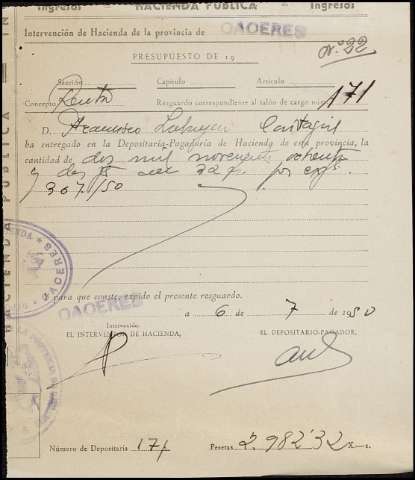 Ingresos HACIENDA PUBLICA Ingresos
Intervención de Hacienda de la provincia de CACERES
PRESUPUESTO DE 19
nº 92
Sección Capítulo Artículo
Concepto Renta Resguardo correspondiente al talón de cargo núm. 171
D. Francisco
ha entregado en la Depositaría-Pagaduría de Hacienda de esta provincia, la
cantidad de dos mil novecientas ochenta
y dos 32 por
307/50
Y para que conste, expido el presente resguardo.
CACERES
a 6 de 7 de 1950
Intervenido:
EL INTERVENTOR DE HACIENDA, EL DEPOSITARIO-PAGADOR,
Número de Depositaría 171 Pesetas 2.982'32
HACIENDA PUBLICA
CACERES